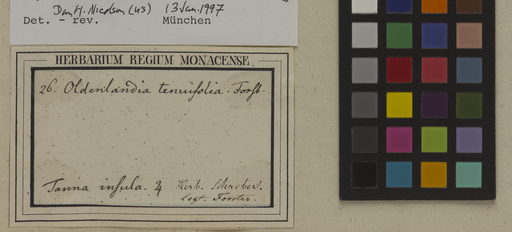 Dan H. Nicolson (US) 13 Jan. 1997
Det. - rev. München
HERBARIUM REGIUM MONACENSE.
26. Oldenlandia tenuifolia. Forst.
Tanna insula. ♃ Herb. Schreber.
Legt. Forster.